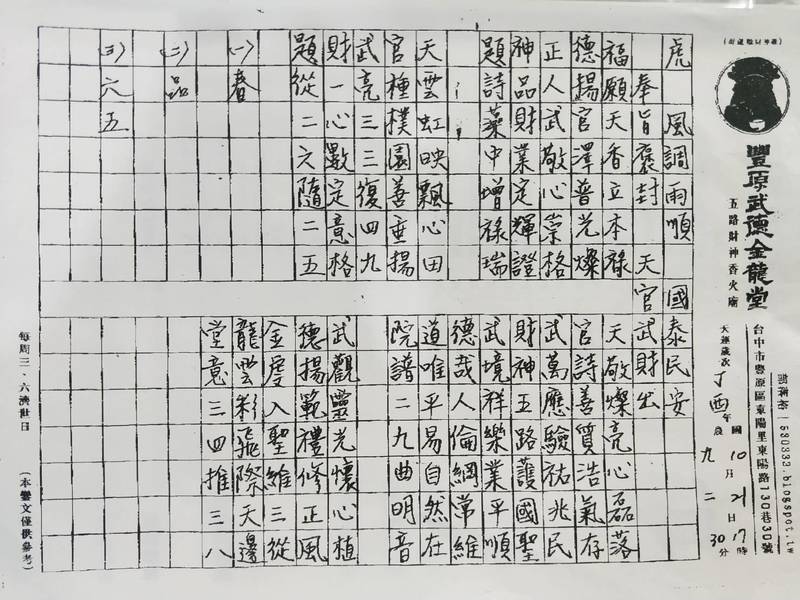 (衛署口駐鸞前)
豐原武德金龍堂
五路財神香火廟
台中市豐原區東陽里東陽路130巷30號
580333.blogspot.tw
天運歲次丁酉年 國10月21日17時
農九 二 30分
虎 風調雨順 國泰民安
奉旨褒封 天官武財出
福願天香立本祿 天敬燦亮心磊落
德揚官澤普光燦 官詩善質浩氣存
正人武敬心崇格 武萬應驗祐兆民
神品財業定輝證 財神五路護國聖
題詩藥中增祿瑞 武境祥樂業平順
； 德哉人倫綱常維
天雲虹映飄心田 道唯平易自然在
官種樸園善垂揚 院譜二九曲明音
武亮三三復四九
財一心數定意格 武觀靈光懷心植
題從二六隨二五 德揚範禮修正風
金虔入聖維三從
(一)春 龍雲彩飛際天邊
堂意三四推三八
(二)品
(三)六五
每周三、六濟世日 (本鸞文僅供參考)